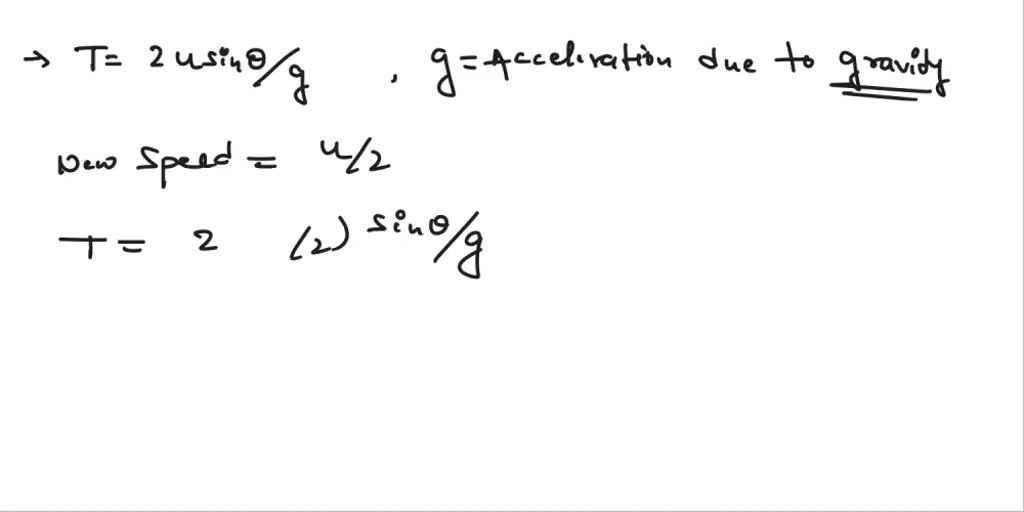 → T= 2usinθ/g , g=Acceliration due to gravity
New Speed = u/2
T = 2 (2) sinθ/g